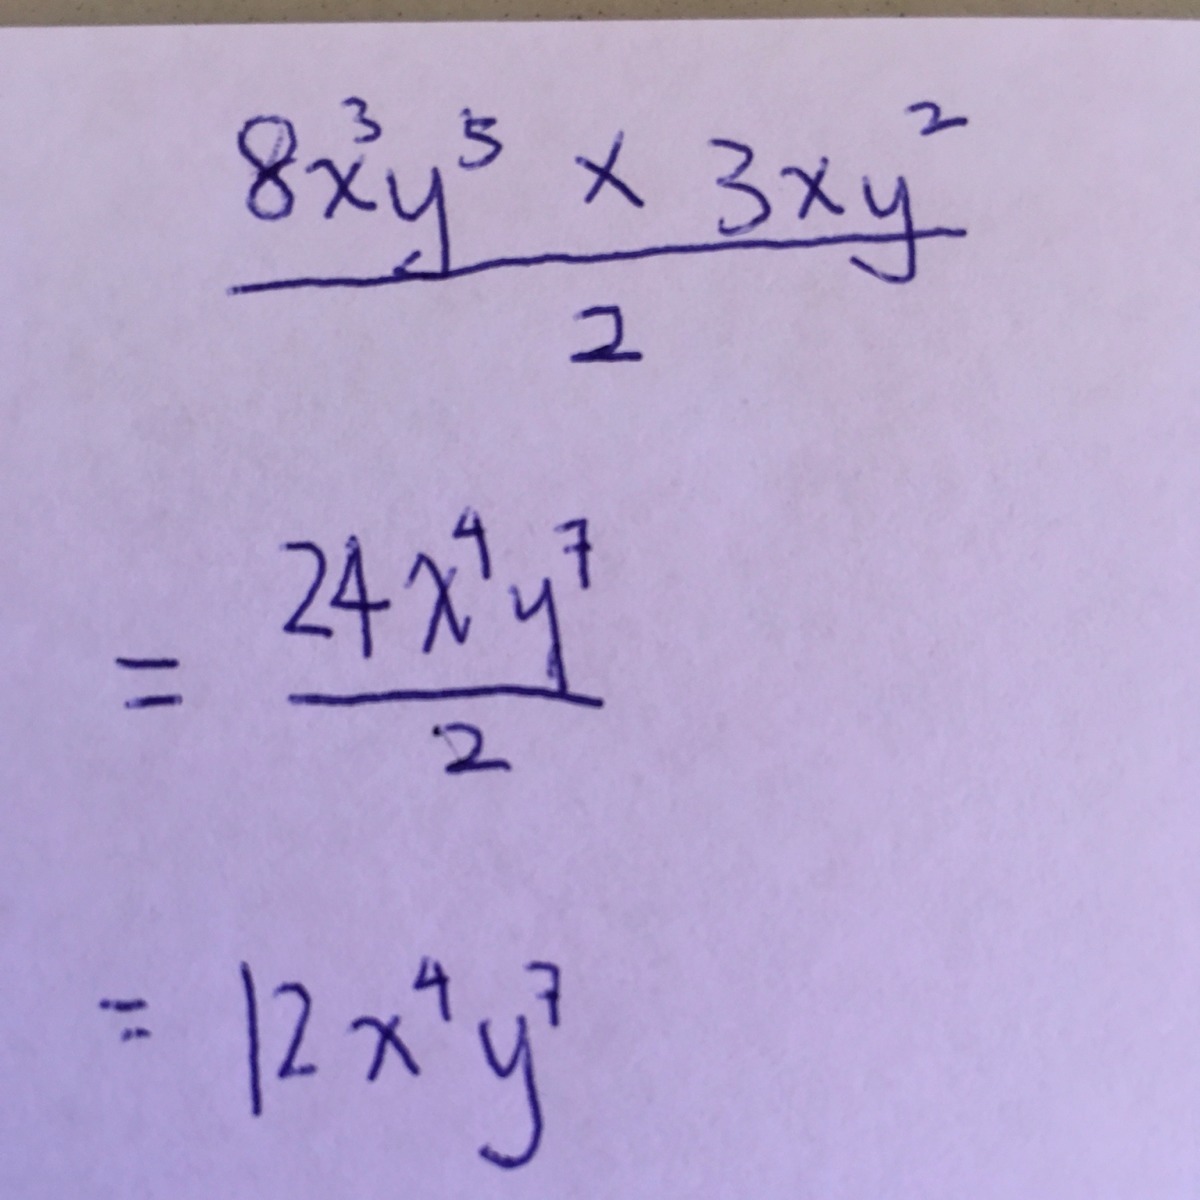 8x³y⁵ × 3xy²
2
= 24x⁴y⁷
2
= 12x⁴y⁷